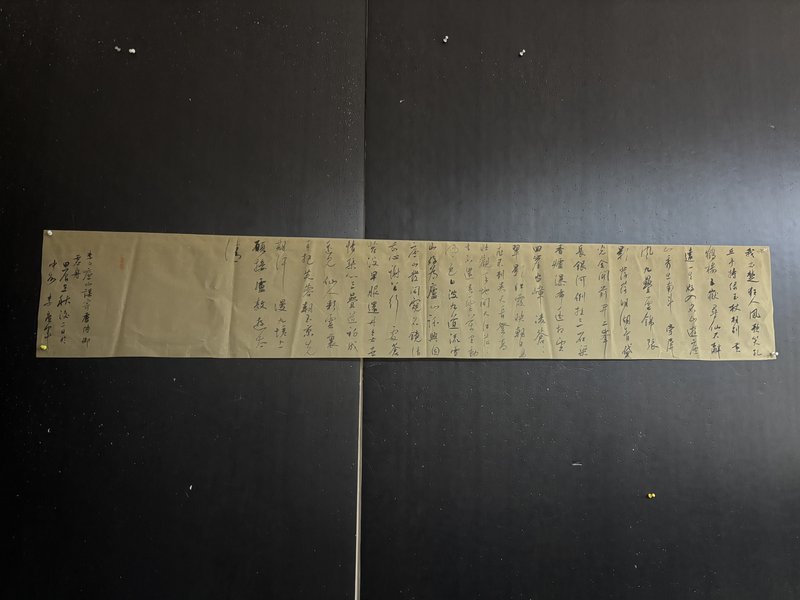 我本楚狂人風歌笑孔
丘手持绿玉杖朝别黄
鹤楼五嶽尋仙不辭
遠一生好入名山遊廬
山秀出南斗傍屏
風九疊雲錦張
影落明湖青黛
光金闕前开二峯
長銀河倒挂三石梁
香爐瀑布遥相望
回崖沓嶂凌蒼蒼
翠影红霞映朝日鳥
飛不到吴天長登高
壮觀天地間大江茫茫
去不還黄雲万里動
風色白波九道流雪
山好為廬山謡興因
廬山發閒窺石鏡清
我心謝公行處蒼
苔沒早服還丹無世
情琴心三疊道初成
遥見仙人彩雲裏
手把芙蓉朝玉京先
期汗漫九垓上
願接盧敖遊太
清
李白廬山謡寄盧侍御
虚舟